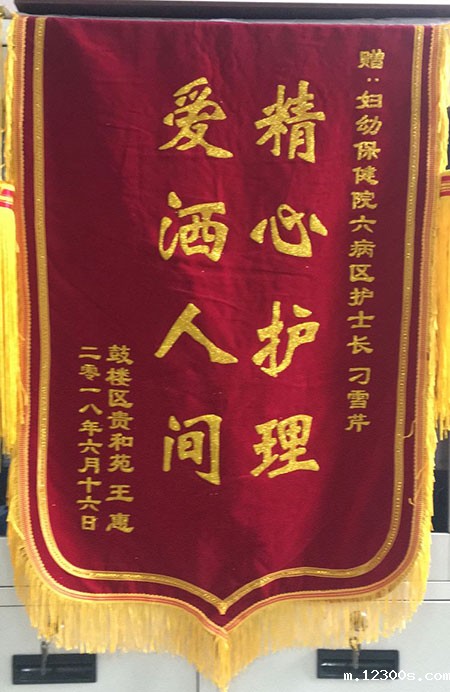 赠：妇幼保健院六病区护士长 刁雪芹
精心护理
爱洒人间
鼓楼区贵和苑 王惠
二零一八年六月十六日
m.12300s.com